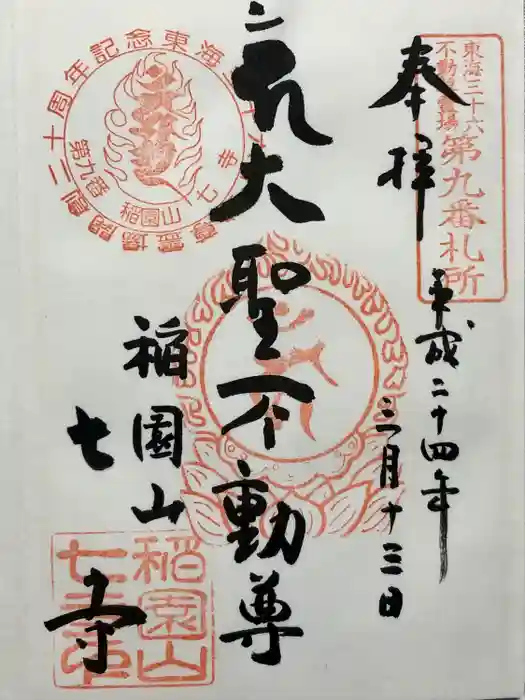 東海三十六
不動尊霊場
第九番札所
奉拝
平成二十四年
三月十三日
大聖不動尊
稲園山
七寺
東海三十六不動尊霊場開創二十周年記念
第九番
稲園山
七寺
稲園山
七寺印